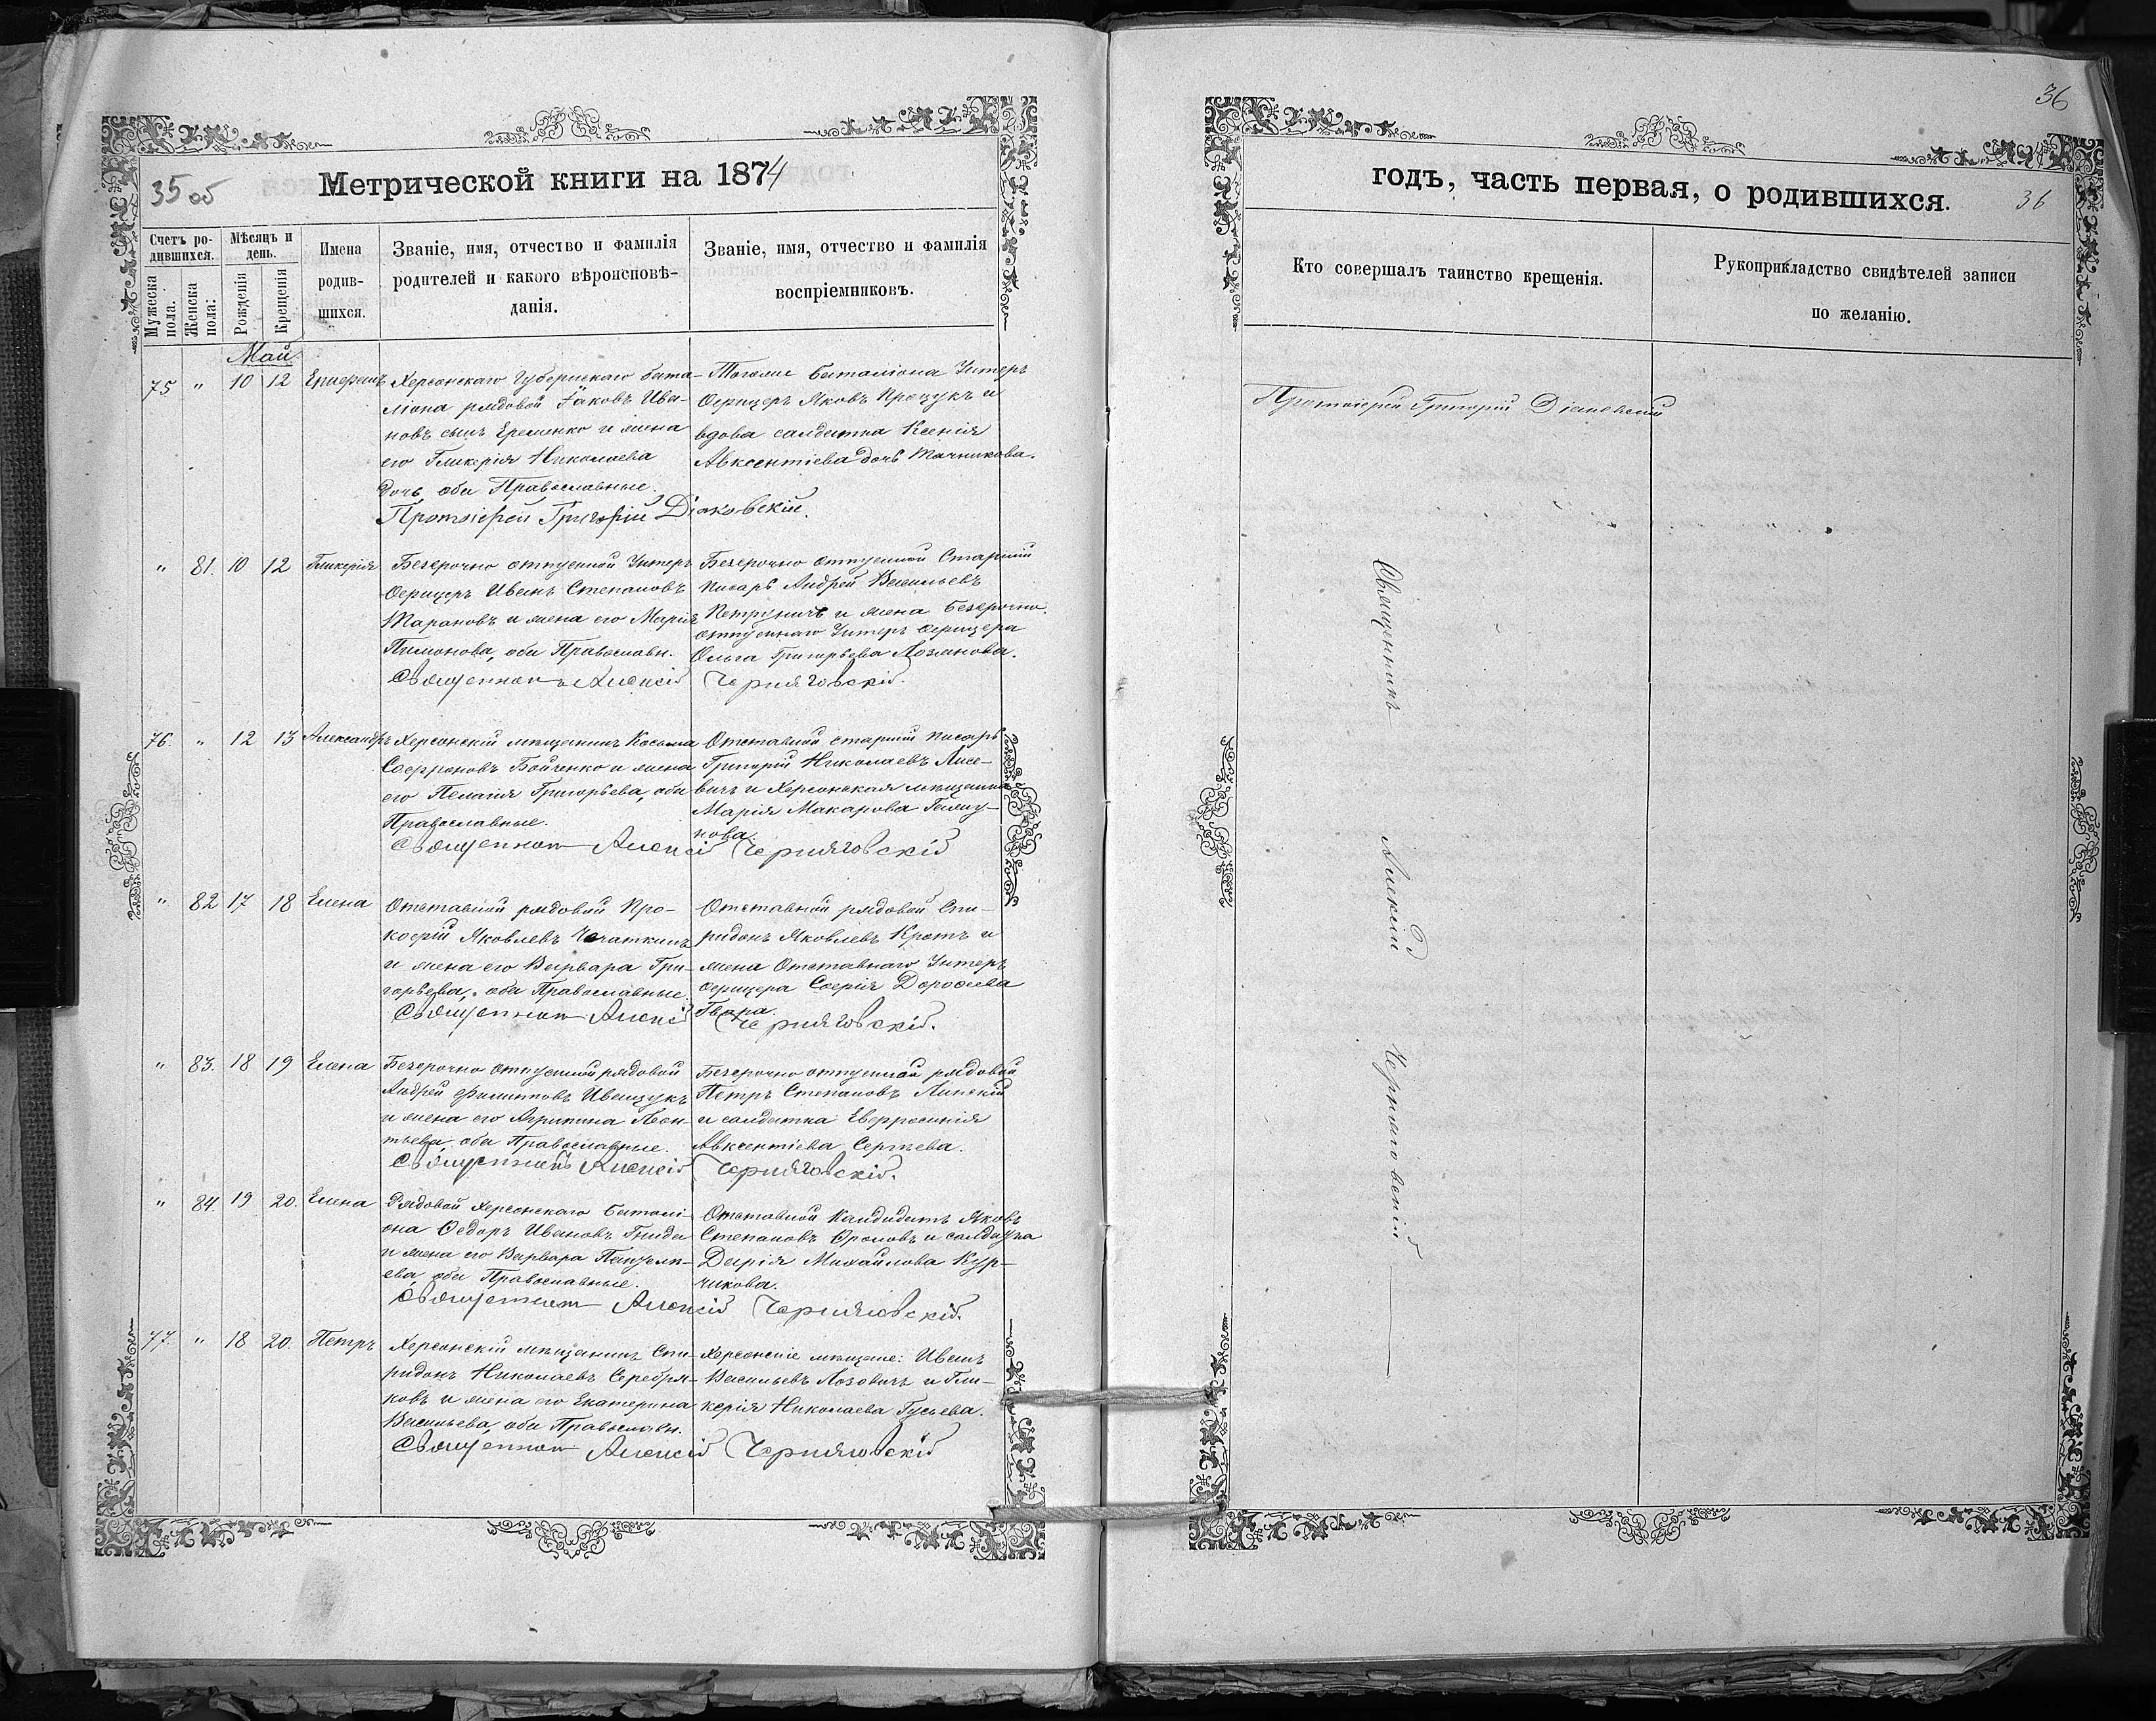 36
35 об
Метрической книги на 1874
Счетъ ро-
дившихся.
Мѣсяцъ и
день.
Мужеска
пола.
Женска
пола:
Рожденія
Крещенія
Имена
родив-
шихся.
Званіе, имя, отчество и фамилія
родителей и какого вѣроисповѣ-
данія.
Званіе, имя, отчество и фамилія
воспріемниковъ.
Май.
75 " 10 12
Херсонскаго Губернскаго бата-
ліона рядовой Іаковъ Ива-
новъ сынъ Еременко и жена
его Гликерія Николаева
дочь, оба Православные.
Тогоже баталіона Унтеръ
Офицеръ Яковъ Процукъ и
вдова солдатка Ксенія
Авксентіева дочь Тачникова.
Протоіерей Григорій Діаковскій.
" 81. 10 12 Гликерія
Безсрочно отпускной Унтеръ
Офицеръ Иванъ Степановъ
Тарановъ и жена его Марія
Пимонова, оба Православн.
Безсрочно отпускной Старшій
писарь Андрей Васильевъ
и жена Безсрочно
отпускнаго Унтеръ Офицера
Ольга Григорьева Лозанова.
Священникъ Алексій Черняговскій.
76. " 12 13 Александръ
Херсонскій мѣщанинъ Косьма
Софроновъ Бойченко и жена
его Пелагія Григорьева, оба
Православные.
Отставной старшій писарь
Григорій Николаевъ Лисе-
вичъ и Херсонская мѣщанка
Марія Макарова
нова.
Священникъ Алексій Черняговскій
" 82 17 18 Елена
Отставной рядовой Про-
кофій Яковлевъ
и жена его Варвара Гри-
горьева, оба Православные.
Отставной рядовой Спи-
ридонъ Яковлевъ Кротъ и
жена Отставнаго Унтеръ
офицера Софія Дорофеева
Священникъ Алексій Черняговскій.
" 83. 18 19 Елена
Безсрочно отпускной рядовой
Андрей Филиповъ Иващукъ
и жена его Агрипина Леон-
тьева, оба Православные.
Безсрочно отпускной рядовой
Петръ Степановъ Липскій
и солдатка Евфросинія
Авксентіева Сергѣева.
Священникъ Алексій Черняговскій.
" 84. 19 20. Елена
Рядовой Херсонскаго батали-
она Федоръ Ивановъ Гнида
и жена его Варвара
ева, оба Православные.
Отставной Кандидатъ Яковъ
Степановъ Фроловъ и солдатка
Дарія Михайлова Кур-
чикова.
Священникъ Алексій Черняговскій.
77. " 18 20. Петръ
Херсонскій мѣщанинъ Спи-
ридонъ Николаевъ Серебря-
ковъ и жена его Екатерина
Васильева, оба Православн.
Херсонскіе мѣщане: Иванъ
Васильевъ Лозовичъ и Гли-
керія Николаева Гусьева.
Священникъ Алексій Черняговскій
годъ, часть первая, о родившихся.
36
Кто совершалъ таинство крещенія.
Рукоприкладство свидѣтелей записи
по желанію.
Протоіерей Григорій Діаковскій
Священникъ Алексій Черняговскій